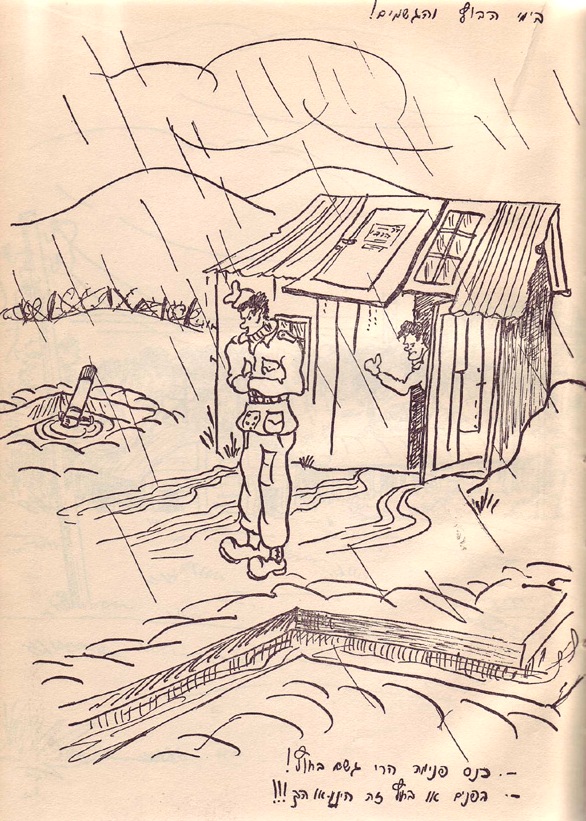 בימי הבוץ והגשמים!
-. כנס פנימה הרי גשם בחוץ!
-. בפנים או בחוץ זה היינו הך!!!